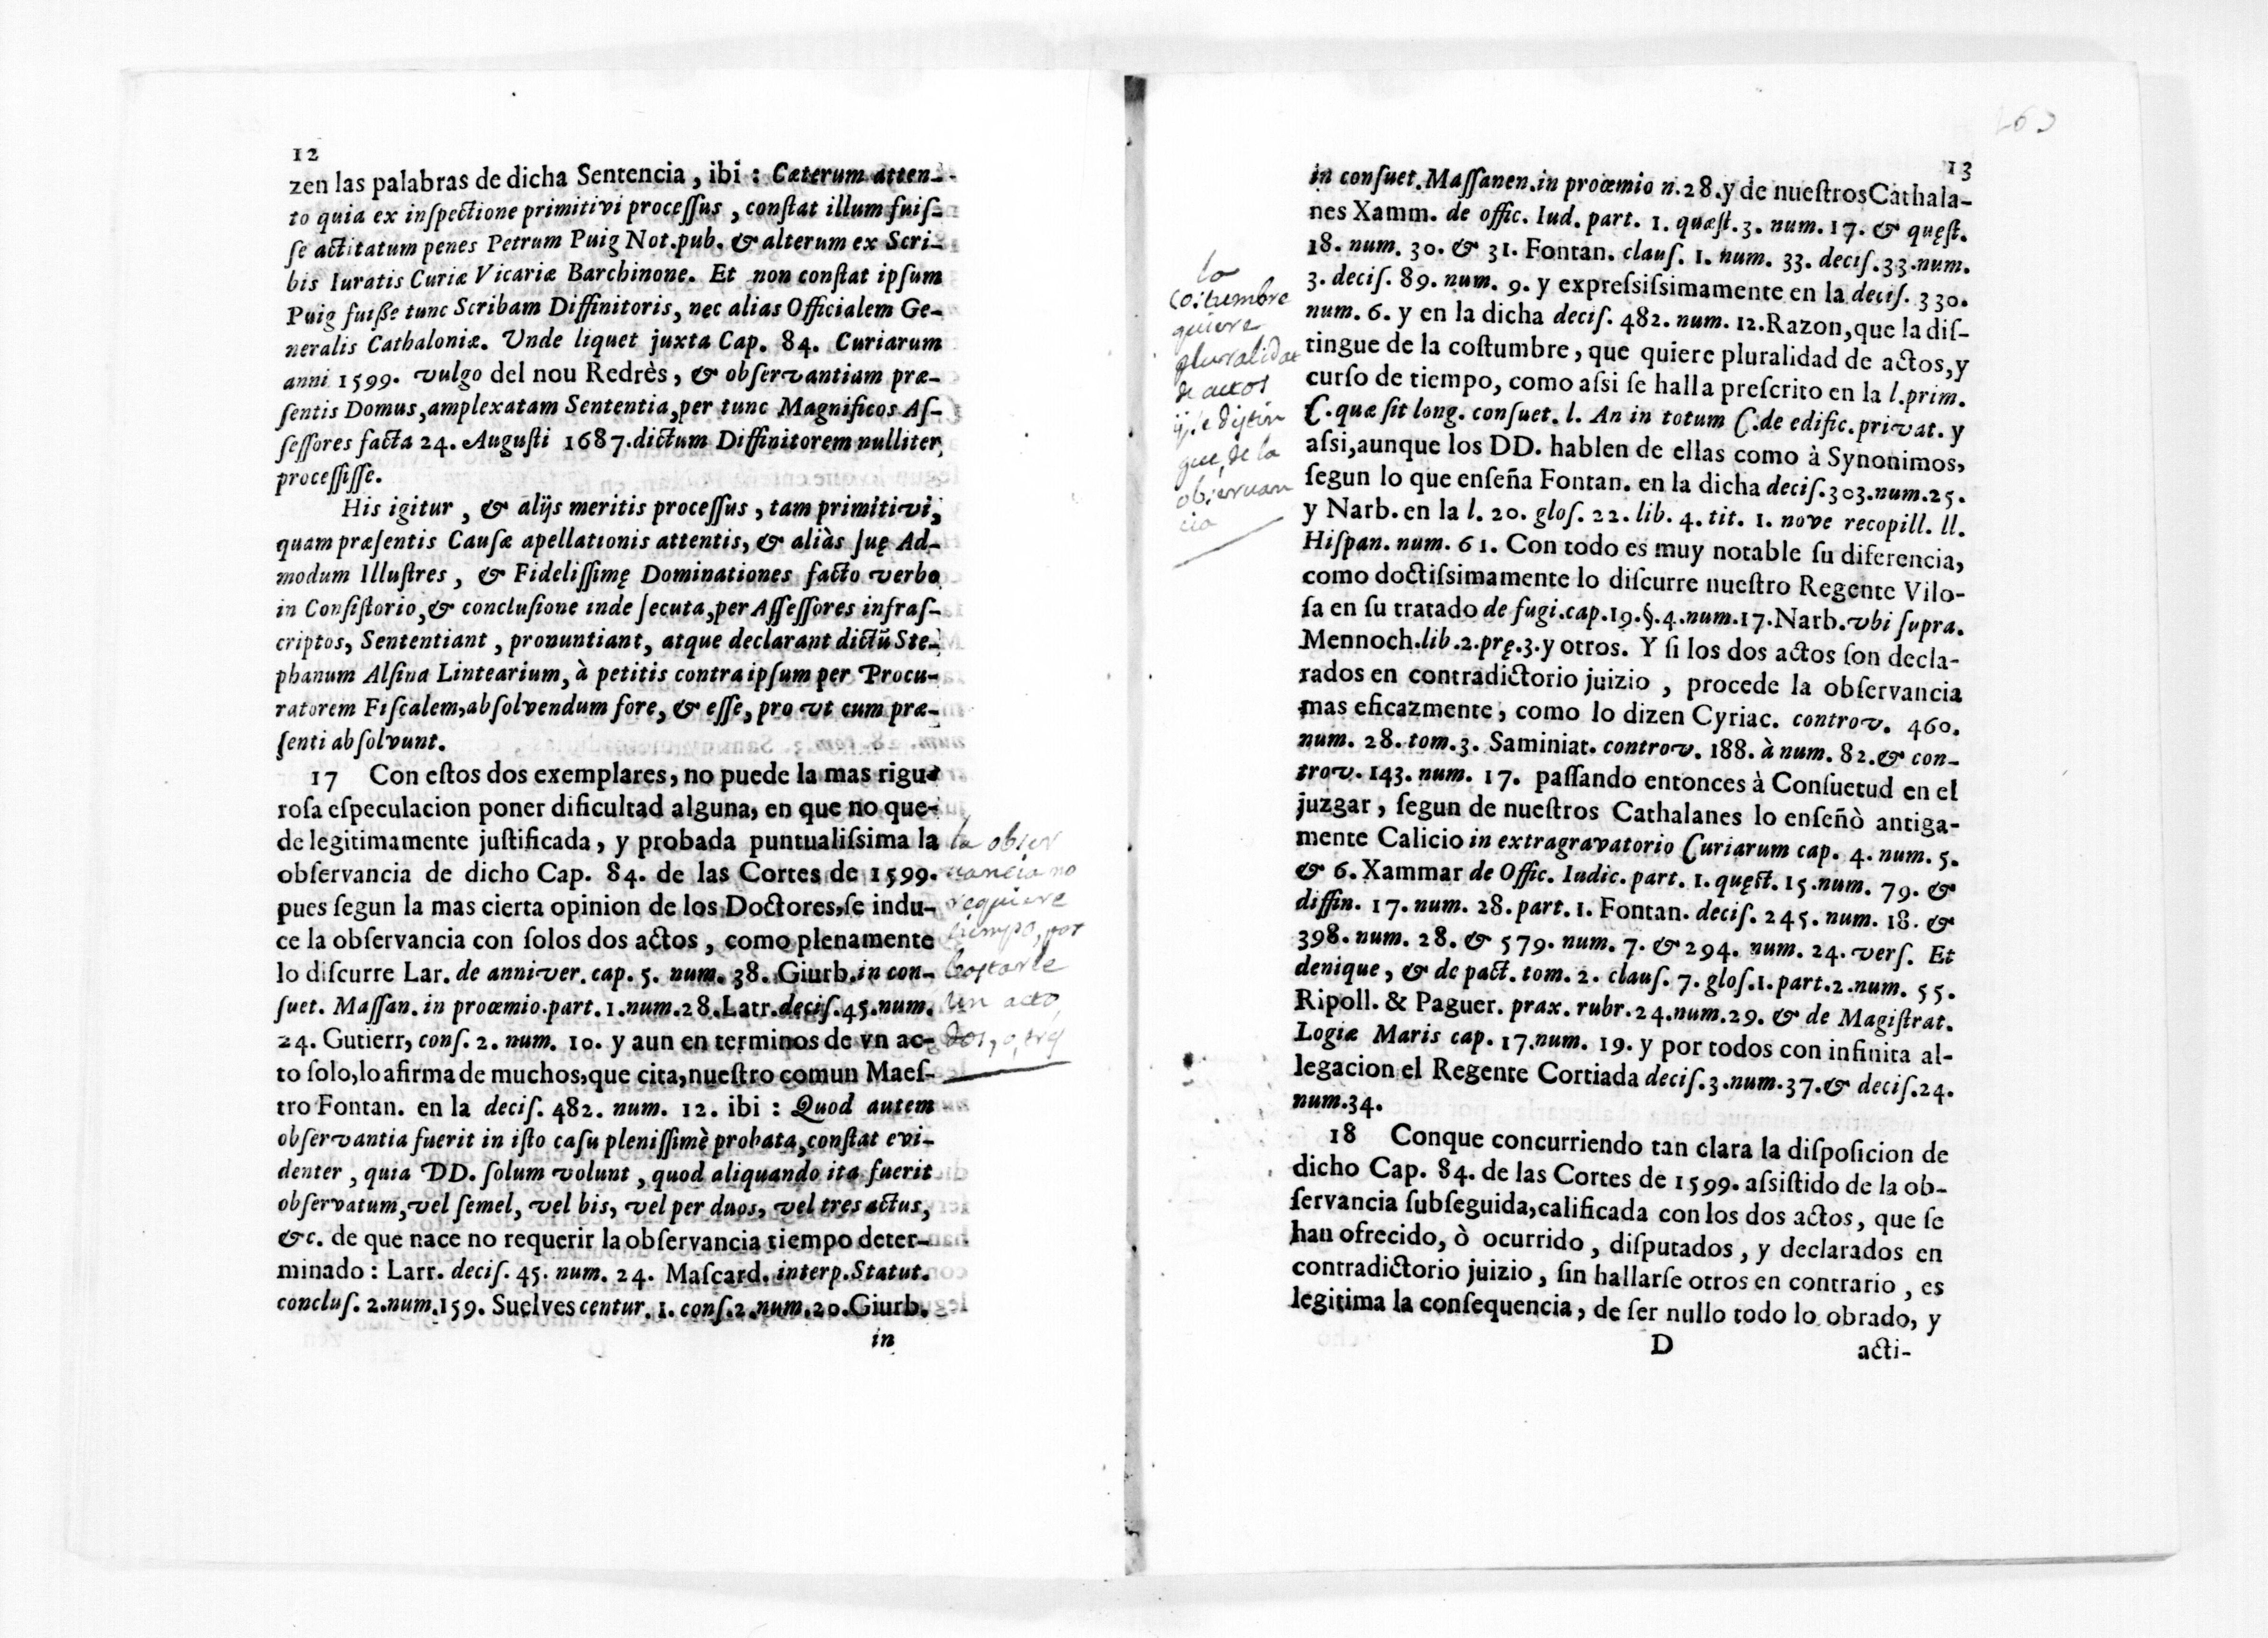 12
zen las palabras de dicha Sentencia, ibi: Cæterum atten-
to quia ex inſpectione primitivi proceſſus, conſtat illum fuiſ-
ſe actitatum penes Petrum Puig Not. pub. & alterum ex Scri-
bis Iuratis Curiæ Vicariæ Barchinone. Et non conſtat ipſum
Puig fuiße tunc Scribam Diffinitoris, nec alias Officialem Ge-
neralis Cathaloniæ. Unde liquet juxta Cap. 84. Curiarum
anni 1599. vulgo del nou Redrès, & obſervantiam præ-
ſentis Domus, amplexatam Sententia, per tunc Magnificos Aſ-
ſeſſores facta 24. Auguſti 1687. dictum Diffinitorem nulliter
proceſſiſſe.
His igitur, & alijs meritis proceſſus, tam primitivi,
quam præſentis Cauſæ apellationis attentis, & aliàs ſuę Ad-
modum Illuſtres, & Fideliſſimę Dominationes facto verbo
in Conſiſtorio, & concluſione inde ſecuta, per Aſſeſſores infraſ-
criptos, Sententiant, pronuntiant, atque declarant dictũ Ste-
phanum Alſina Lintearium, à petitis contra ipſum per Procu-
ratorem Fiſcalem, abſolvendum fore, & eſſe, pro vt cum præ-
ſenti abſolvunt.
17 Con eſtos dos exemplares, no puede la mas rigu-
roſa eſpeculacion poner dificultad alguna, en que no que-
de legitimamente juſtificada, y probada puntualiſsima la
obſervancia de dicho Cap. 84. de las Cortes de 1599.
pues ſegun la mas cierta opinion de los Doctores, ſe indu-
ce la obſervancia con ſolos dos actos, como plenamente
lo diſcurre Lar. de anniver. cap. 5. num. 38. Giurb. in con-
ſuet. Maſſan. in proœmio. part. 1. num. 28. Latr. deciſ. 45. num.
24. Gutierr, conſ. 2. num. 10. y aun en terminos de vn ac-
to ſolo, lo afirma de muchos, que cita, nueſtro comun Maeſ-
tro Fontan. en la deciſ. 482. num. 12. ibi: Quod autem
obſervantia fuerit in iſto caſu pleniſſimè probata, conſtat evi-
denter, quia DD. ſolum volunt, quod aliquando ita fuerit
obſervatum, vel ſemel, vel bis, vel per duos, vel tres actus,
&c. de que nace no requerir la obſervancia tiempo deter-
minado: Larr. deciſ. 45. num. 24. Maſcard. interp. Statut.
concluſ. 2. num. 159. Suelves centur. 1. conſ. 2. num. 20. Giurb.
in
la obser
vancia no
requiere
tiempo, por
bastarle
un acto,
dos, o, tres
13
in conſuet. Maſſanen. in proœmio n. 28. y de nueſtros Cathala-
nes Xamm. de offic. Iud. part. 1. quæſt. 3. num. 17. & quęſt.
18. num. 30. & 31. Fontan. clauſ. 1. num. 33. deciſ. 33. num.
3. deciſ. 89. num. 9. y expreſsiſsimamente en la deciſ. 330.
num. 6. y en la dicha deciſ. 482. num. 12. Razon, que la diſ-
tingue de la coſtumbre, que quiere pluralidad de actos, y
curſo de tiempo, como aſsi ſe halla preſcrito en la l. prim.
C. quæ ſit long. conſuet. l. An in totum C. de edific. privat. y
aſsi, aunque los DD. hablen de ellas como à Synonimos,
ſegun lo que enſeña Fontan. en la dicha deciſ. 303. num. 25.
y Narb. en la l. 20. gloſ. 22. lib. 4. tit. 1. nove recopill. ll.
Hiſpan. num. 61. Con todo es muy notable ſu diferencia,
como doctiſsimamente lo diſcurre nueſtro Regente Vilo-
ſa en ſu tratado de fugi. cap. 19. §. 4. num. 17. Narb. vbi ſupra.
Mennoch. lib. 2. prę. 3. y otros. Y ſi los dos actos ſon decla-
rados en contradictorio juizio, procede la obſervancia
mas eficazmente, como lo dizen Cyriac. controv. 460.
num. 28. tom. 3. Saminiat. controv. 188. à num. 82. & con-
trov. 143. num. 17. paſſando entonces à Conſuetud en el
juzgar, ſegun de nueſtros Cathalanes lo enſeñò antiga-
mente Calicio in extragravatorio Curiarum cap. 4. num. 5.
& 6. Xammar de Offic. Iudic. part. 1. quęſt. 15. num. 79. &
diffin. 17. num. 28. part. 1. Fontan. deciſ. 245. num. 18. &
398. num. 28. & 579. num. 7. & 294. num. 24. verſ. Et
denique, & de pact. tom. 2. clauſ. 7. gloſ. 1. part. 2. num. 55.
Ripoll. & Paguer. prax. rubr. 24. num. 29. & de Magiſtrat.
Logiæ Maris cap. 17. num. 19. y por todos con infinita al-
legacion el Regente Cortiada deciſ. 3. num. 37. & deciſ. 24.
num. 34.
18 Conque concurriendo tan clara la diſpoſicion de
dicho Cap. 84. de las Cortes de 1599. aſsiſtido de la ob-
ſervancia ſubſeguida, calificada con los dos actos, que ſe
han ofrecido, ò ocurrido, diſputados, y declarados en
contradictorio juizio, ſin hallarſe otros en contrario, es
legitima la conſequencia, de ſer nullo todo lo obrado, y
D acti-
la
costumbre
quiere
pluralidat
de actos
y se distin
gue de la
observan
cia